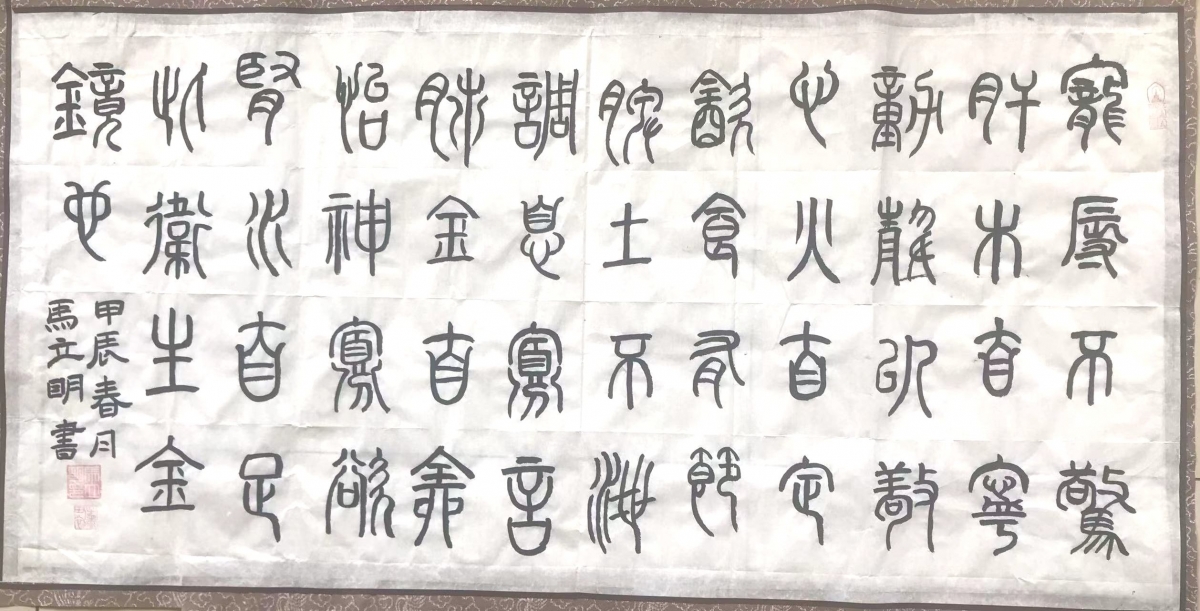 寵辱不驚
肝木自寧
動靜以敬
心火自定
飲食有節
脾土不泄
調息寡言
肺金自全
怡神寡欲
腎水自足
此衛生金
鏡也
甲辰春月
馬立明書